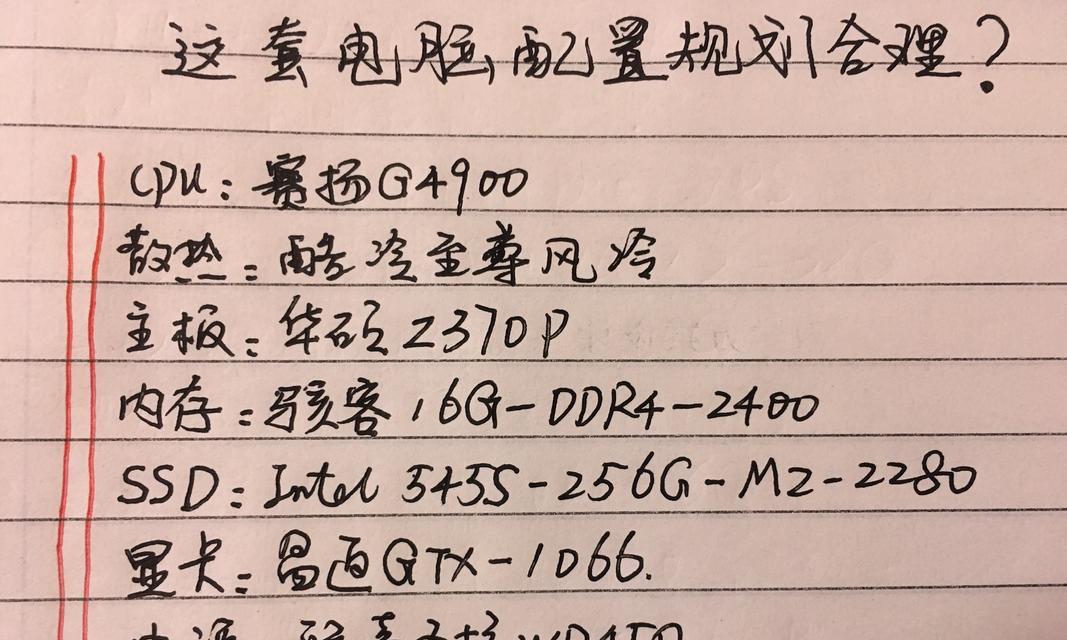 这套电脑配置规划合理?
CPU:赛扬G4900
散热:酷冷至尊风冷
主板:华硕Z370P
内存:骇客16G-DDR4-2400
SSD:Intel 545S-256G-M2-2280
显卡:昌GTX-1066.